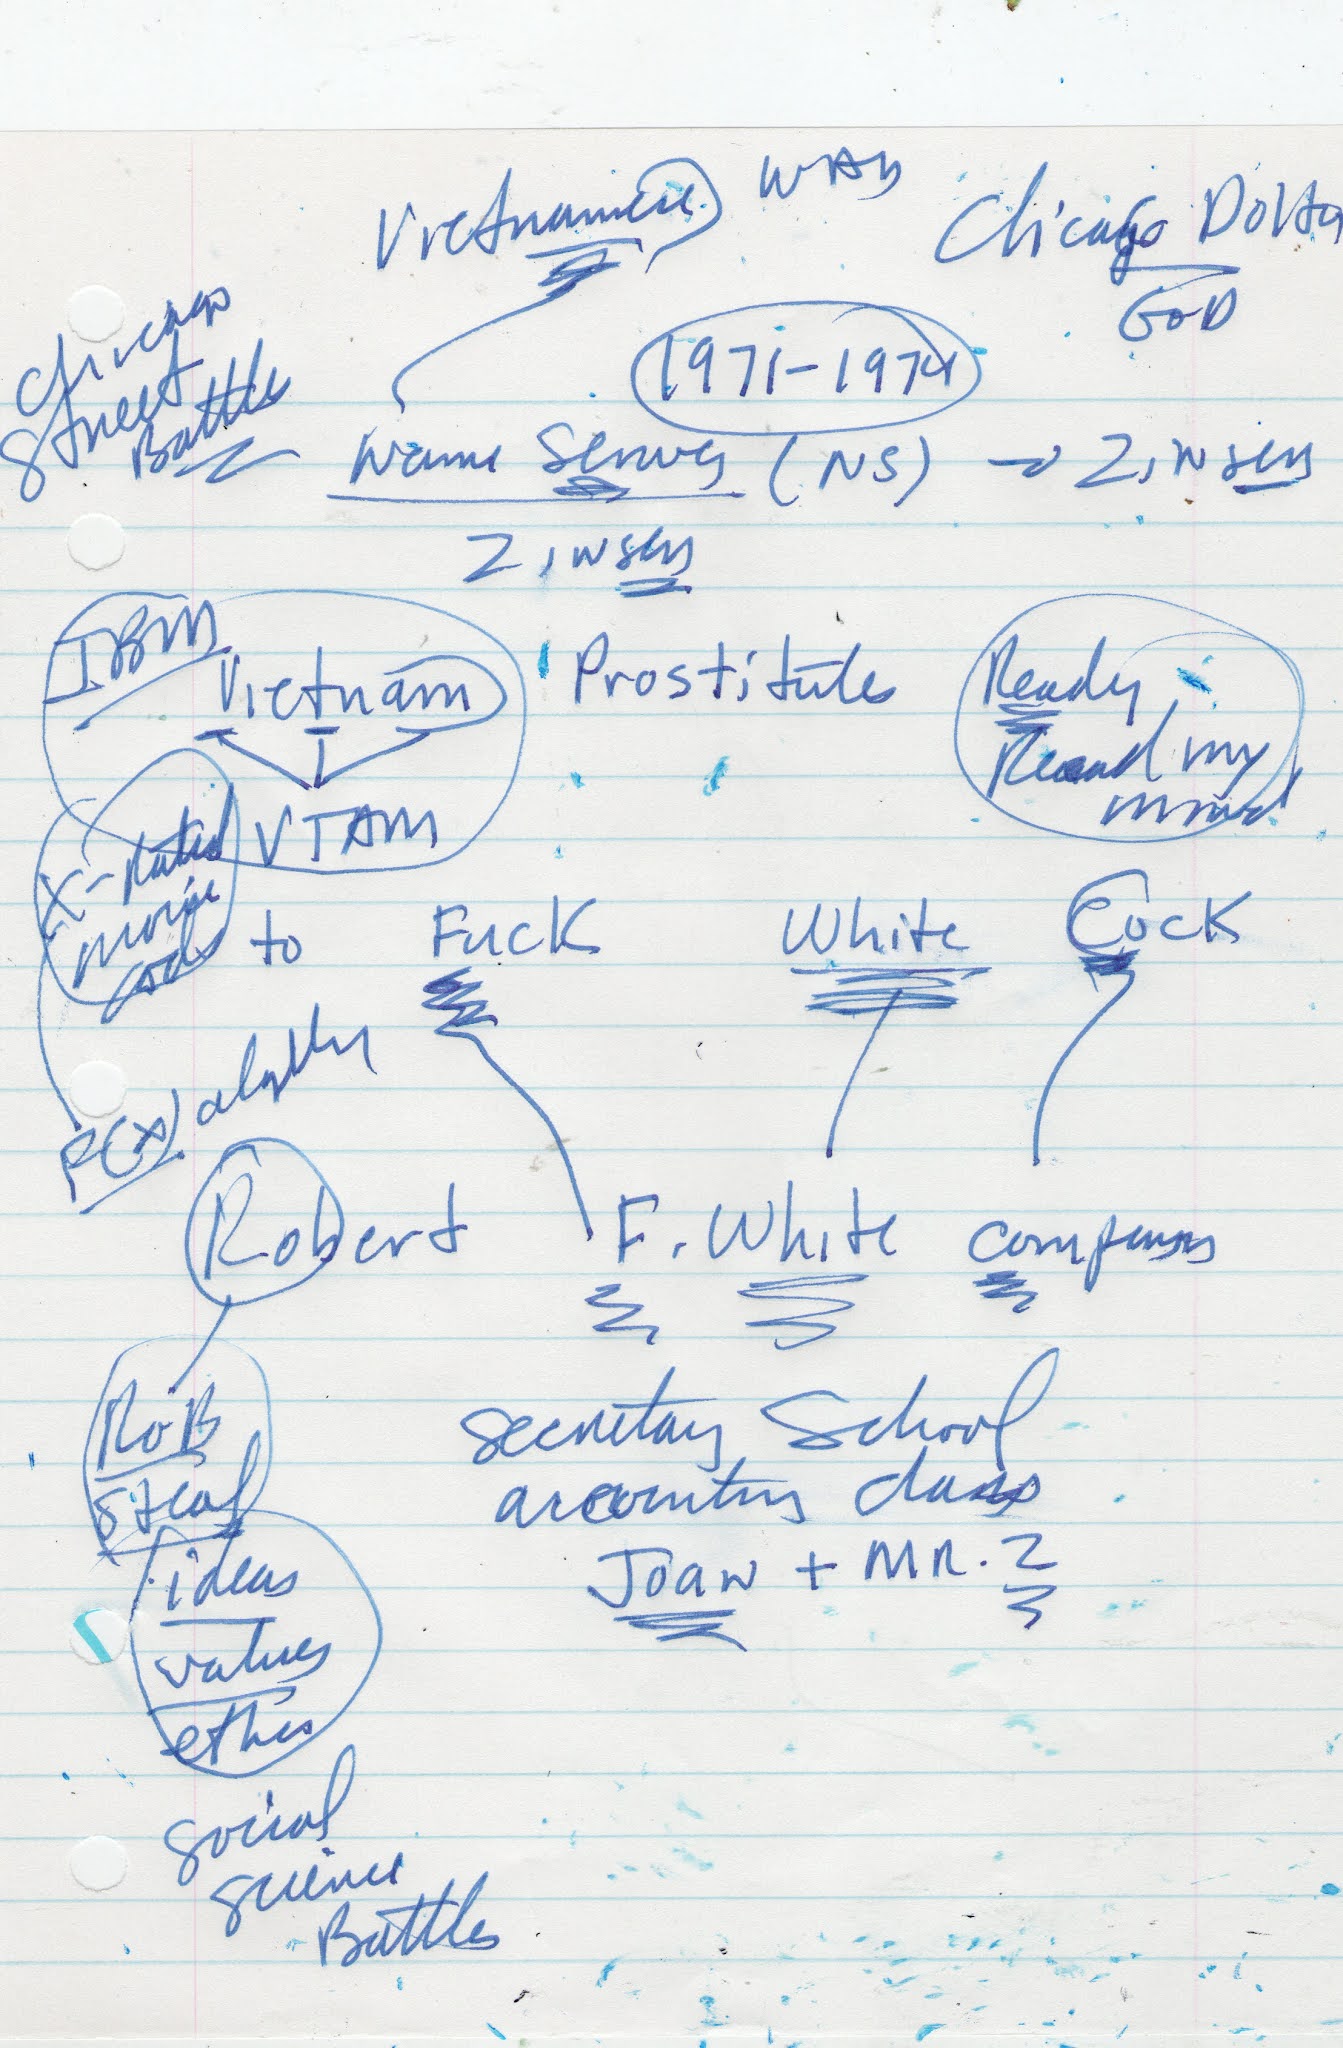 Vietnamese way
Chicago Dolton
GOD
Chicago
Street
Battle
1971-1974
Name Server (NS) → Z, N
Z, N
IBM
Vietnam Prostitute Ready
Read my
mind
VTAM
X-Rated
morse
code
to Fuck White Cock
P(x)
Robert F. White company
ROB
steal
ideas
values
ethics
secretary School
accounting class
Joan + MR. Z
social
science
Battles